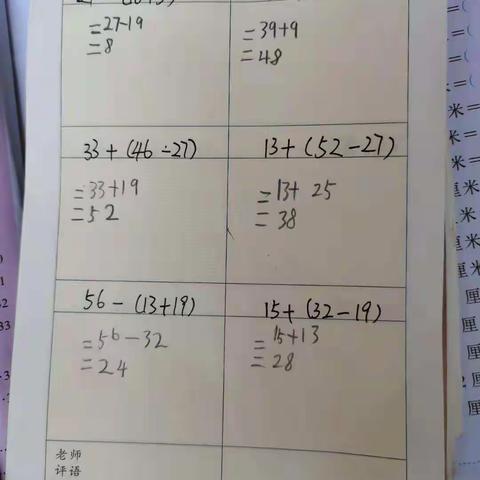 =27-19
=8
=39+9
=48
33+(46÷27)
13+(52-27)
=33+19
=52
=13+25
=38
56-(13+19)
15+(32-19)
=56-32
=24
=15+13
=28
老师
评语
=(
=(
=
米=
米=
米=
厘米
厘米
厘米
厘米
厘
厘
厘
厘
厘